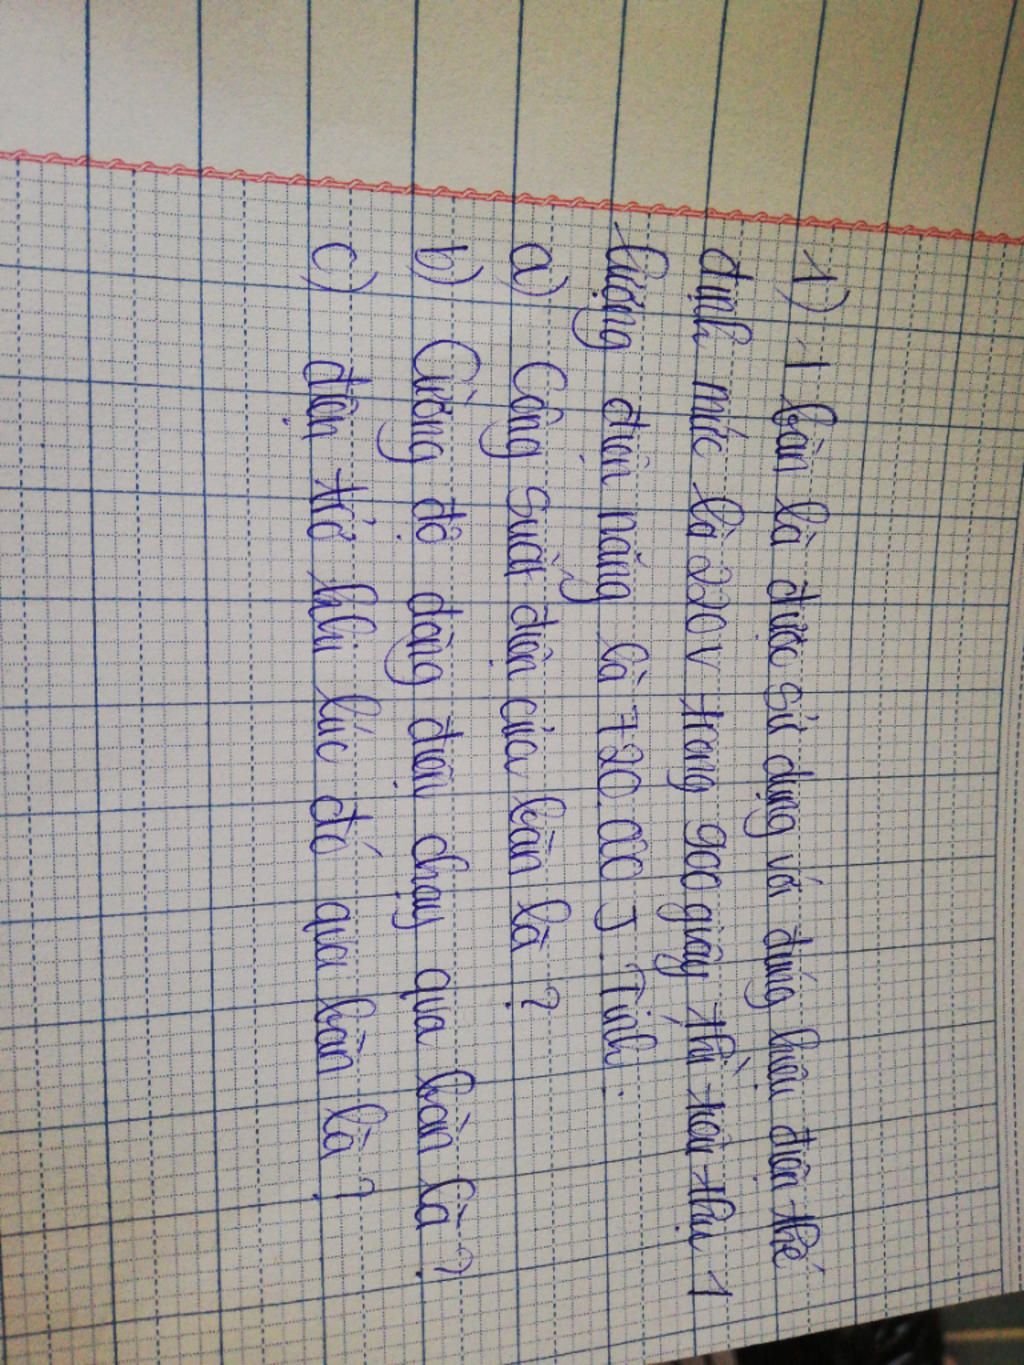 1) 1 bàn là được sử dụng với đúng hiệu điện thế
định mức là 220V trong 900 giây thì tiêu thụ 1
lượng điện năng là 720.000 J. Tính.
a) Công suất điện của bàn là ?
b) Cường độ dòng điện chạy qua bàn là ?
c) điện trở khi lúc đó qua bàn là ?